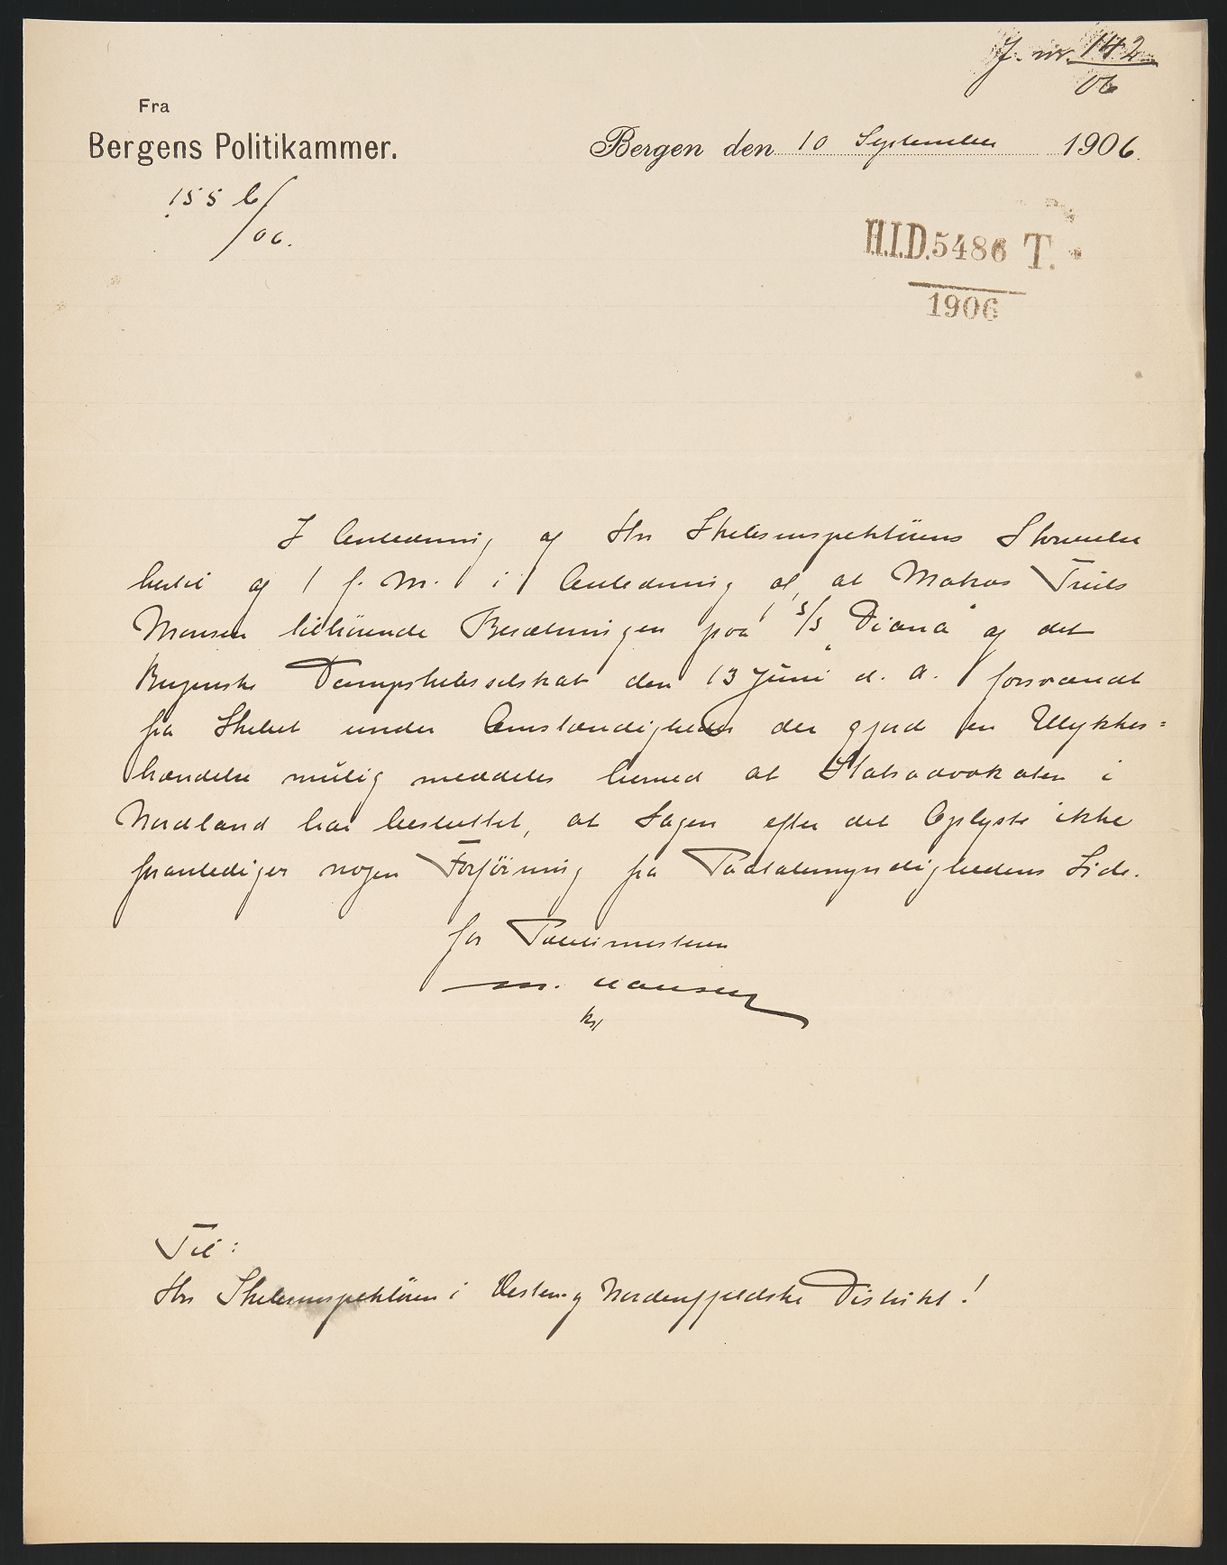 J. nr. 142
06
Fra
Bergens Politikammer.
Bergen den 10 September 1906.
155 b/
/06.
H.I.D. 5486 T.
1906
I Anledning af Hr. Skibsinspektörens Skrivelse
hertil af 1 f. M. i Anledning af, at Matros Truls
Monsen tilhörende Besætningen paa S/S „Diana" af det
Bergenske Dampskibsselskab den 13 Juni d. A. forsvandt
fra Skibet under Omstændigheder der gjør en Ulykkes=
hændelse mulig meddeles herved at Statsadvokaten i
Nordland har besluttet, at Sagen efter det Oplyste ikke
foranlediger nogen Forföining fra Paatalemyndighedens Side.
for Politimesteren
M. Hansen
kst
Til:
Hr. Skibsinspektören i Vesten- og Nordenfjeldske Distrikt!